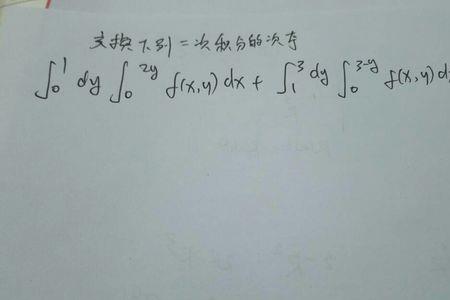 交换下列二次积分的次序
∫₀¹ dy ∫₀²ʸ f(x,y) dx + ∫₁³ dy ∫₀³⁻ʸ f(x,y) d